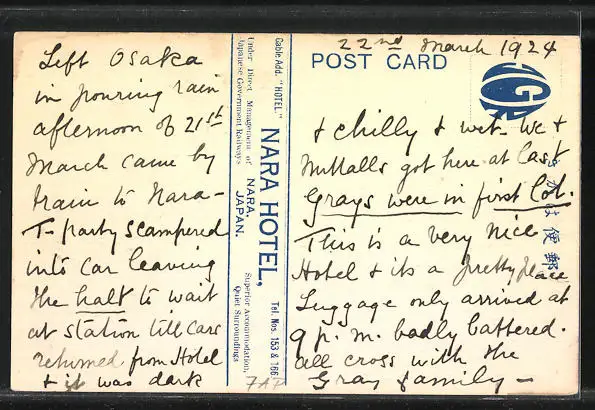 22nd March 1924
POST CARD
Left Osaka
in pouring rain
afternoon of 21st
March came by
train to Nara -
T- party scampered
into car leaving
the halt to wait
at station till cars
returned from Hotel
& it was dark
Cable Add. "HOTEL"
Under Direct Management of
Japanese Government Railways
NARA HOTEL,
NARA,
JAPAN.
Superior Accommodation,
Quiet Surroundings
Tel. Nos. 153 & 166
& chilly & wet. We &
Nuttalls got here at last
Grays were in first Col.
This is a very nice
Hotel & its a pretty place
Luggage only arrived at
9 p.m. badly battered.
all cross with the
Gray family -
きがは便郵